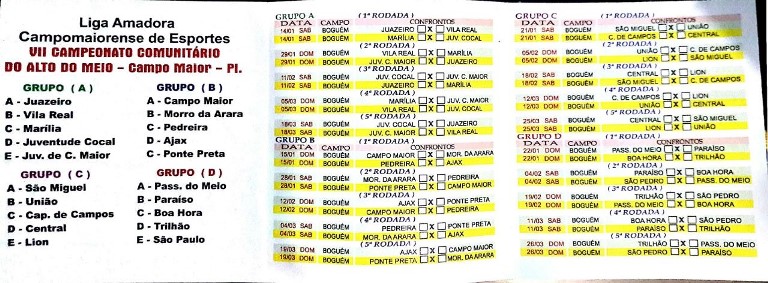 Liga Amadora
Campomaiorense de Esportes
VII CAMPEONATO COMUNITÁRIO
DO ALTO DO MEIO – Campo Maior – PI.
GRUPO ( A )
A - Juazeiro
B - Vila Real
C - Marília
D - Juventude Cocal
E - Juv. de C. Maior
GRUPO ( B )
A - Campo Maior
B - Morro da Arara
C - Pedreira
D - Ajax
C - Ponte Preta
GRUPO ( C )
A - São Miguel
B - União
C - Cap. de Campos
D - Central
E - Lion
GRUPO ( D )
A - Pass. do Meio
B - Paraíso
C - Boa Hora
D - Trilhão
E - São Paulo
GRUPO A (1ª RODADA)
DATA CAMPO CONFRONTOS
14/01 SAB BOGUÉM JUAZEIRO X VILA REAL
14/01 SAB BOGUÉM MARÍLIA X JUV. COCAL
(2ª RODADA)
29/01 DOM BOGUÉM VILA REAL X MARÍLIA
29/01 DOM BOGUÉM JUV. C. MAIOR X JUAZEIRO
(3ª RODADA)
11/02 SAB BOGUÉM JUV. COCAL X JUV. C. MAIOR
11/02 SAB BOGUÉM JUAZEIRO X MARÍLIA
(4ª RODADA)
05/03 DOM BOGUÉM MARÍLIA X JUV. C. MAIOR
05/03 DOM BOGUÉM VILA REAL X JUV. COCAL
(5ª RODADA)
18/03 SAB BOGUÉM JUV. COCAL X JUAZEIRO
18/03 SAB BOGUÉM JUV. C. MAIOR X VILA REAL
GRUPO B (1ª RODADA)
DATA CAMPO CONFRONTOS
15/01 DOM BOGUÉM CAMPO MAIOR X MOR. DA ARARA
15/01 DOM BOGUÉM PEDREIRA X AJAX
(2ª RODADA)
28/01 SAB BOGUÉM MOR. DA ARARA X PEDREIRA
28/01 SAB BOGUÉM PONTE PRETA X CAMPO MAIOR
(3ª RODADA)
12/02 DOM BOGUÉM AJAX X PONTE PRETA
12/02 DOM BOGUÉM CAMPO MAIOR X PEDREIRA
(4ª RODADA)
04/03 SAB BOGUÉM PEDREIRA X PONTE PRETA
04/03 SAB BOGUÉM MOR. DA ARARA X AJAX
(5ª RODADA)
19/03 DOM BOGUÉM AJAX X CAMPO MAIOR
19/03 DOM BOGUÉM PONTE PRETA X MOR. DA ARARA
GRUPO C (1ª RODADA)
DATA CAMPO CONFRONTOS
21/01 SAB BOGUÉM SÃO MIGUEL X UNIÃO
21/01 SAB BOGUÉM C. DE CAMPOS X CENTRAL
(2ª RODADA)
05/02 DOM BOGUÉM UNIÃO X C. DE CAMPOS
05/02 DOM BOGUÉM LION X SÃO MIGUEL
(3ª RODADA)
18/02 SAB BOGUÉM CENTRAL X LION
18/02 SAB BOGUÉM SÃO MIGUEL X C. DE CAMPOS
(4ª RODADA)
12/03 DOM BOGUÉM C. DE CAMPOS X LION
12/03 DOM BOGUÉM UNIÃO X CENTRAL
(5ª RODADA)
25/03 SAB BOGUÉM CENTRAL X SÃO MIGUEL
25/03 SAB BOGUÉM LION X UNIÃO
GRUPO D (1ª RODADA)
DATA CAMPO CONFRONTOS
22/01 DOM BOGUÉM PASS. DO MEIO X PARAÍSO
22/01 DOM BOGUÉM BOA HORA X TRILHÃO
(2ª RODADA)
04/02 SAB BOGUÉM PARAÍSO X BOA HORA
04/02 SAB BOGUÉM SÃO PEDRO X PASS. DO MEIO
(3ª RODADA)
19/02 DOM BOGUÉM TRILHÃO X SÃO PEDRO
19/02 DOM BOGUÉM PASS. DO MEIO X BOA HORA
(4ª RODADA)
11/03 SAB BOGUÉM BOA HORA X SÃO PEDRO
11/03 SAB BOGUÉM PARAÍSO X TRILHÃO
(5ª RODADA)
26/03 DOM BOGUÉM TRILHÃO X PASS. DO MEIO
26/03 DOM BOGUÉM SÃO PEDRO X PARAÍSO